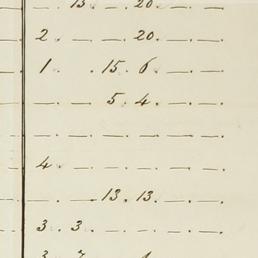 — 13. 20. — . —
2. — . — 20. — . —
1. — . 15. 6. — . —
— . — . 5. 4. — . —
— . — . — . — . — . —
4. — . — . — . — . —
— . — . 13. 13. — . —
3. 3. — . — . — . —